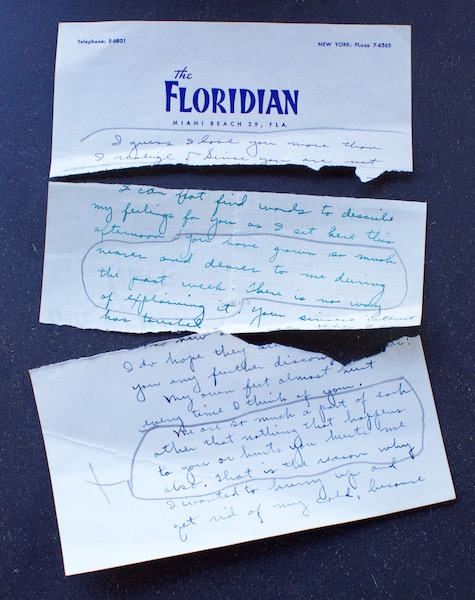 Telephone: 5-6801
NEW YORK: PLaza 7-6365
The
FLORIDIAN
MIAMI BEACH 39, FLA.
I guess I love you more than
I realize & since you are not
I can not find words to describe
my feelings for you as I sit here this
afternoon. You have grown so much
nearer and dearer to me during
the past week. There is no way
of explaining it. Your
has touched
I do hope they
you any further
My own feet almost hurt
every time I think of you.
We are so much a part of each
other that nothing that happens
to you or hurts you hurts me
also. That is the reason why
I wanted to hurry up and
get rid of my cold, because